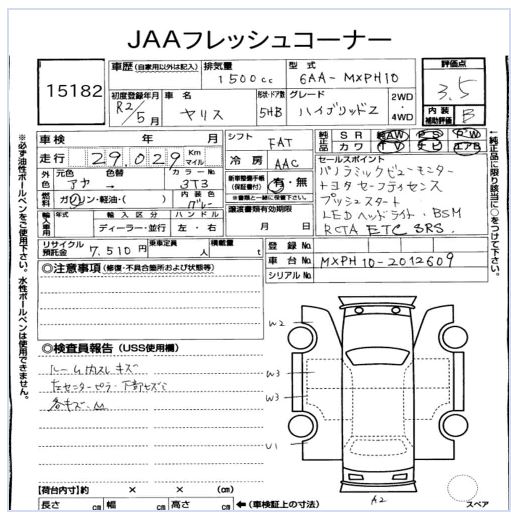 JAAフレッシュコーナー
15182
車歴 (自家用以外は記入) 排気量 1500cc 型式 6AA-MXPH10
評価点 3.5
内装補助評価 B
初度登録年月 R2/5月 車名 ヤリス 形状・ドア数 5HB グレード ハイブリッドZ 2WD・4WD
車検 年 月 シフト FAT
純正品 SR AW PS PW カワ TV ナビ エアB
走行 29,029 Km マイル 冷房 AAC
セールスポイント
パノラミックビューモニター
トヨタセーフティセンス
プッシュスタート
LEDヘッドライト・BSM
RCTA ETC SRS.
外色 元色 アカ 色替 → カラーNo 3T3 新車整備手帳(保証書付) 有・無
※書類と一緒に保管して下さい。
燃料 ガソリン・軽油・( ) 内装色 グレー
譲渡書類有効期限 月 日
輸入車用 年式 輸入区分 ディーラー・並行 ハンドル 左・右
リサイクル預託金 7,510円 乗車定員 人 積載量 t
登録No
車台No MXPH10-2012609
シリアルNo
◎注意事項 (修復・不具合箇所および状態等)
◎検査員報告 (USS使用欄)
ルーム内スレキズ
左センターピラー下部キズ
各キズ
W2
W3
W3
U1
A2
スペア
【荷台内寸】約 × × (cm)
長さ cm 幅 cm 高さ cm ←(車検証上の寸法)
※必ず油性ボールペンをご使用下さい。水性ボールペンは使用不可
←純正品に限り該当に○をつけて下さい。